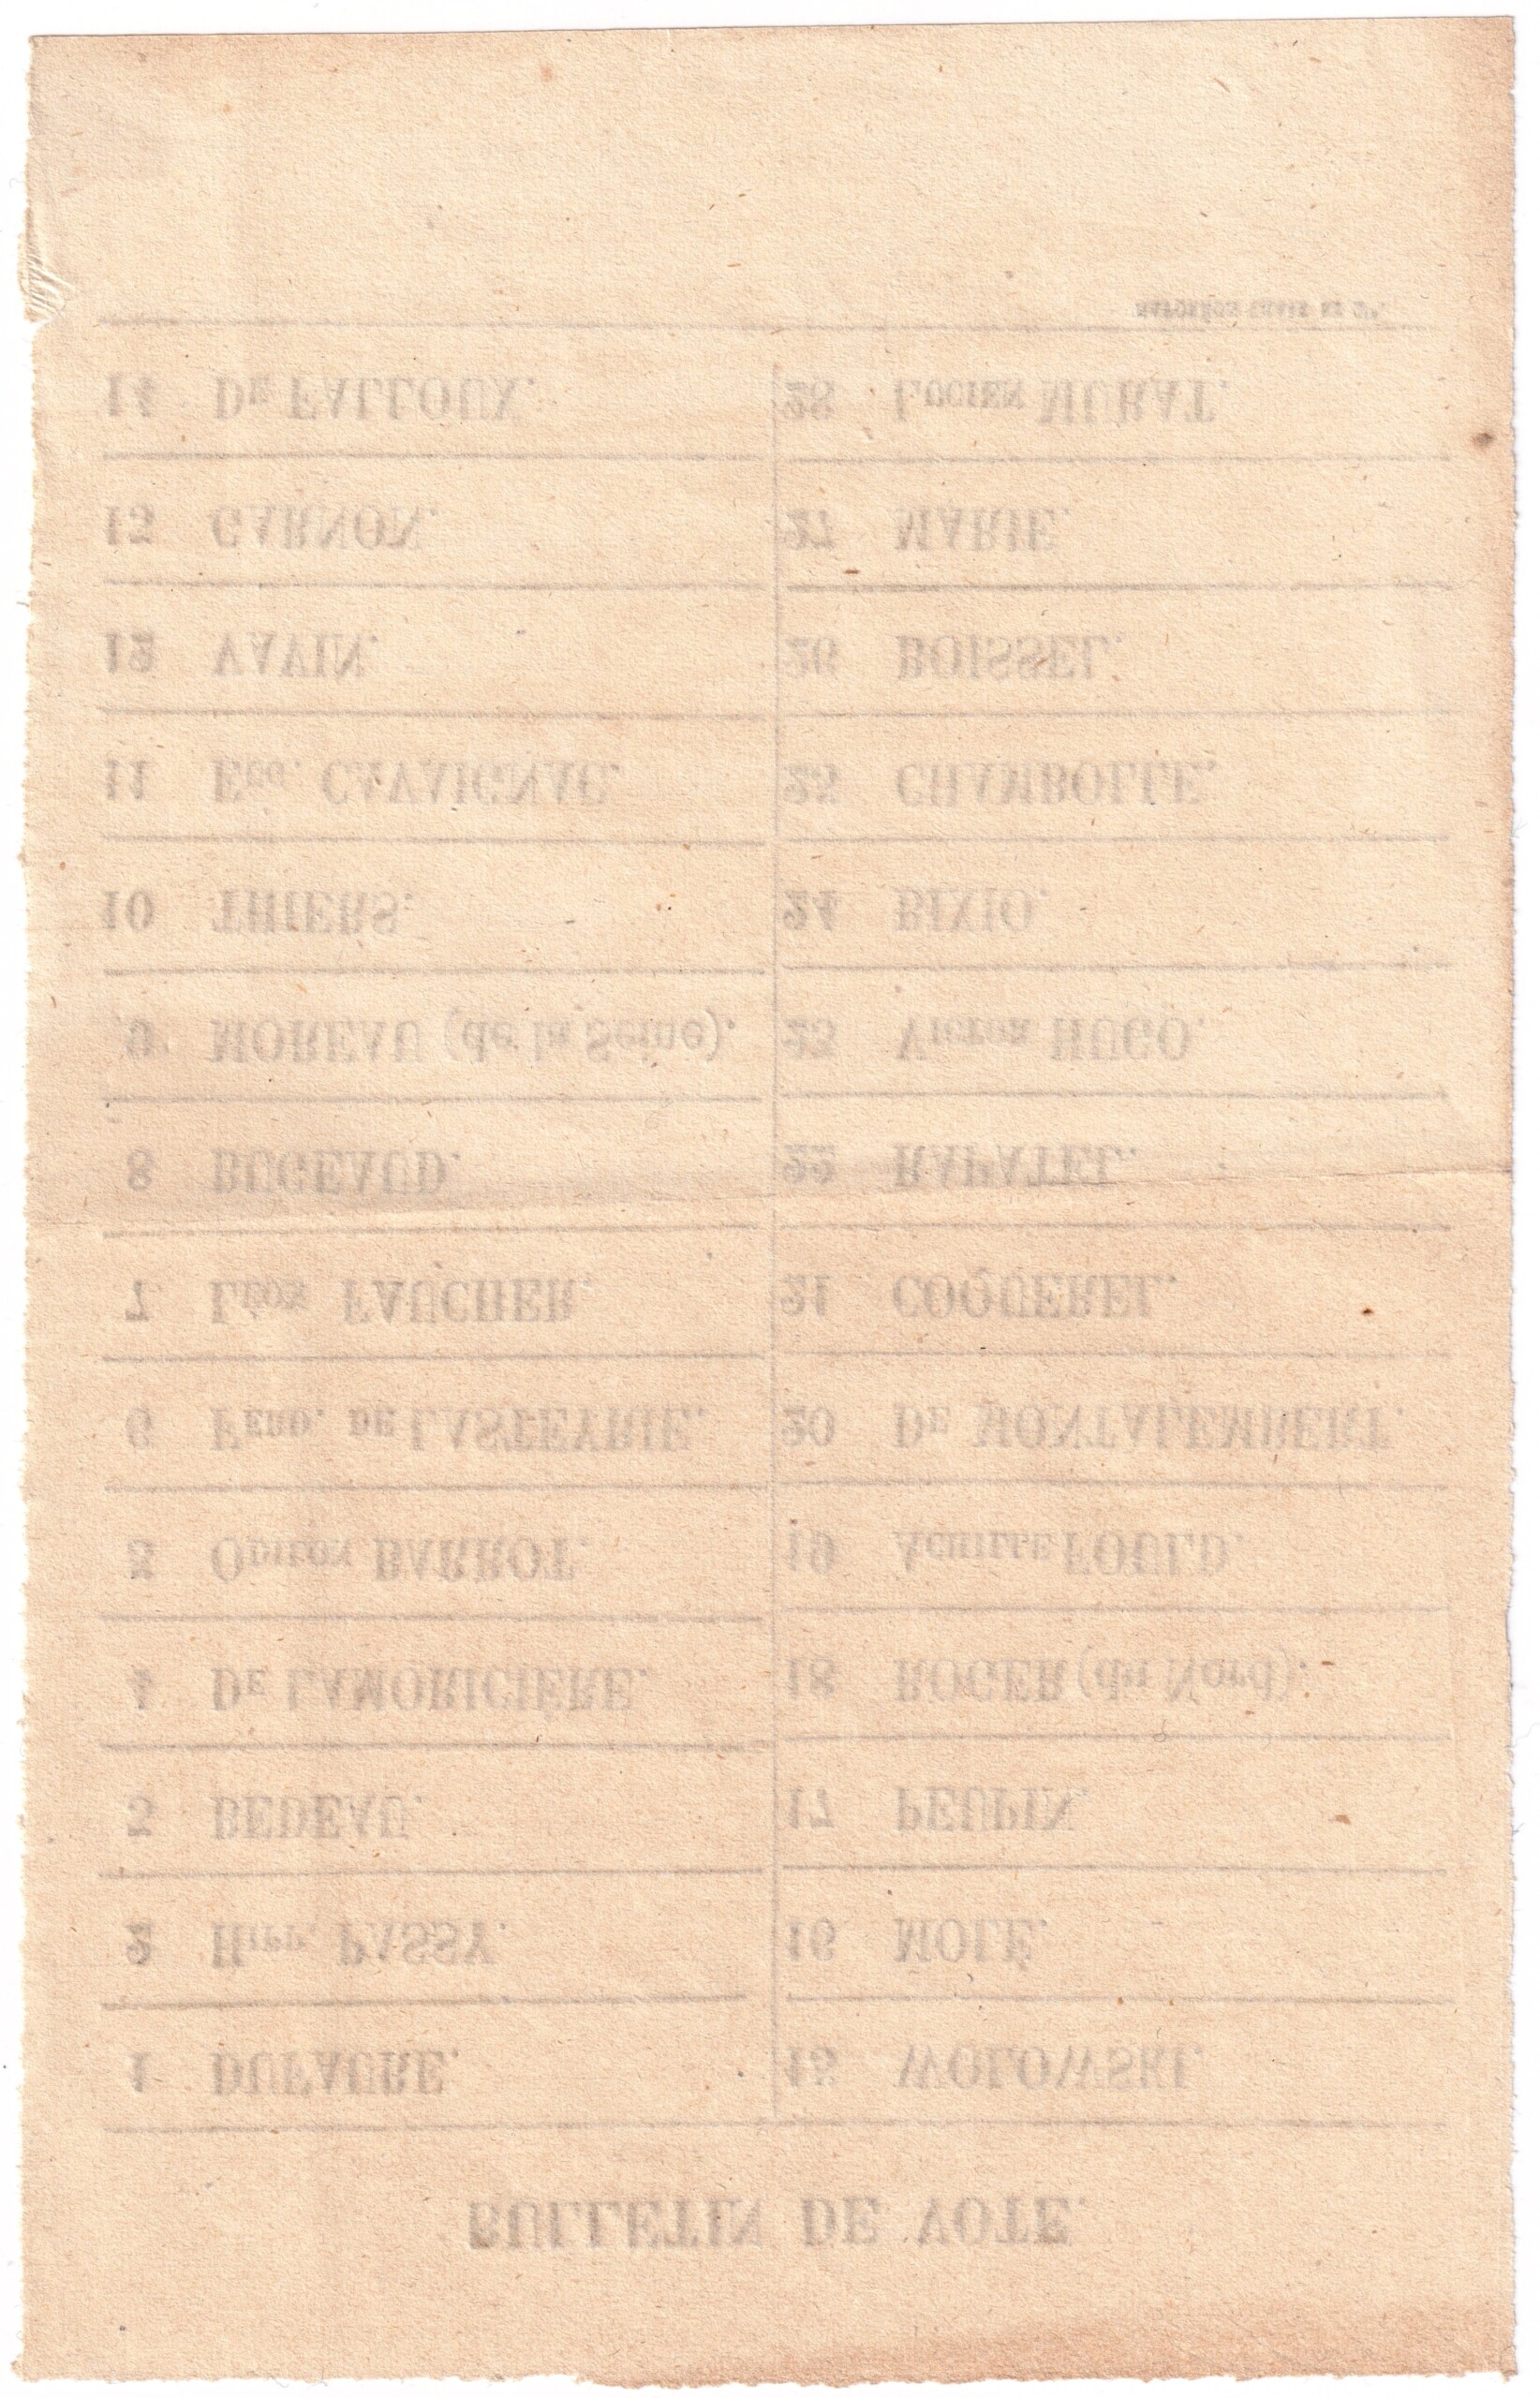 BULLETIN DE VOTE.
1 DUFAURE.
2 Hipp. PASSY.
3 BEDEAU.
4 De LAMORICIÈRE.
5 Odilon BARROT.
6 Ferd. de LASTEYRIE.
7 Léon FAUCHER.
8 BUGEAUD.
9 MOREAU (de la Seine).
10 THIERS.
11 Eug. CAVAIGNAC.
12 VAVIN.
13 GARNON.
14 De FALLOUX.
15 WOLOWSKI.
16 MOLÉ.
17 PEUPIN.
18 ROGER (du Nord).
19 Achille FOULD.
20 De MONTALEMBERT.
21 COQUEREL.
22 RAPATEL.
23 Victor HUGO.
24 BIXIO.
25 CHAMBOLLE.
26 BOISSEL.
27 MARIE.
28 Lucien MURAT.
NAPOLÉON CHAIX ET Cie.